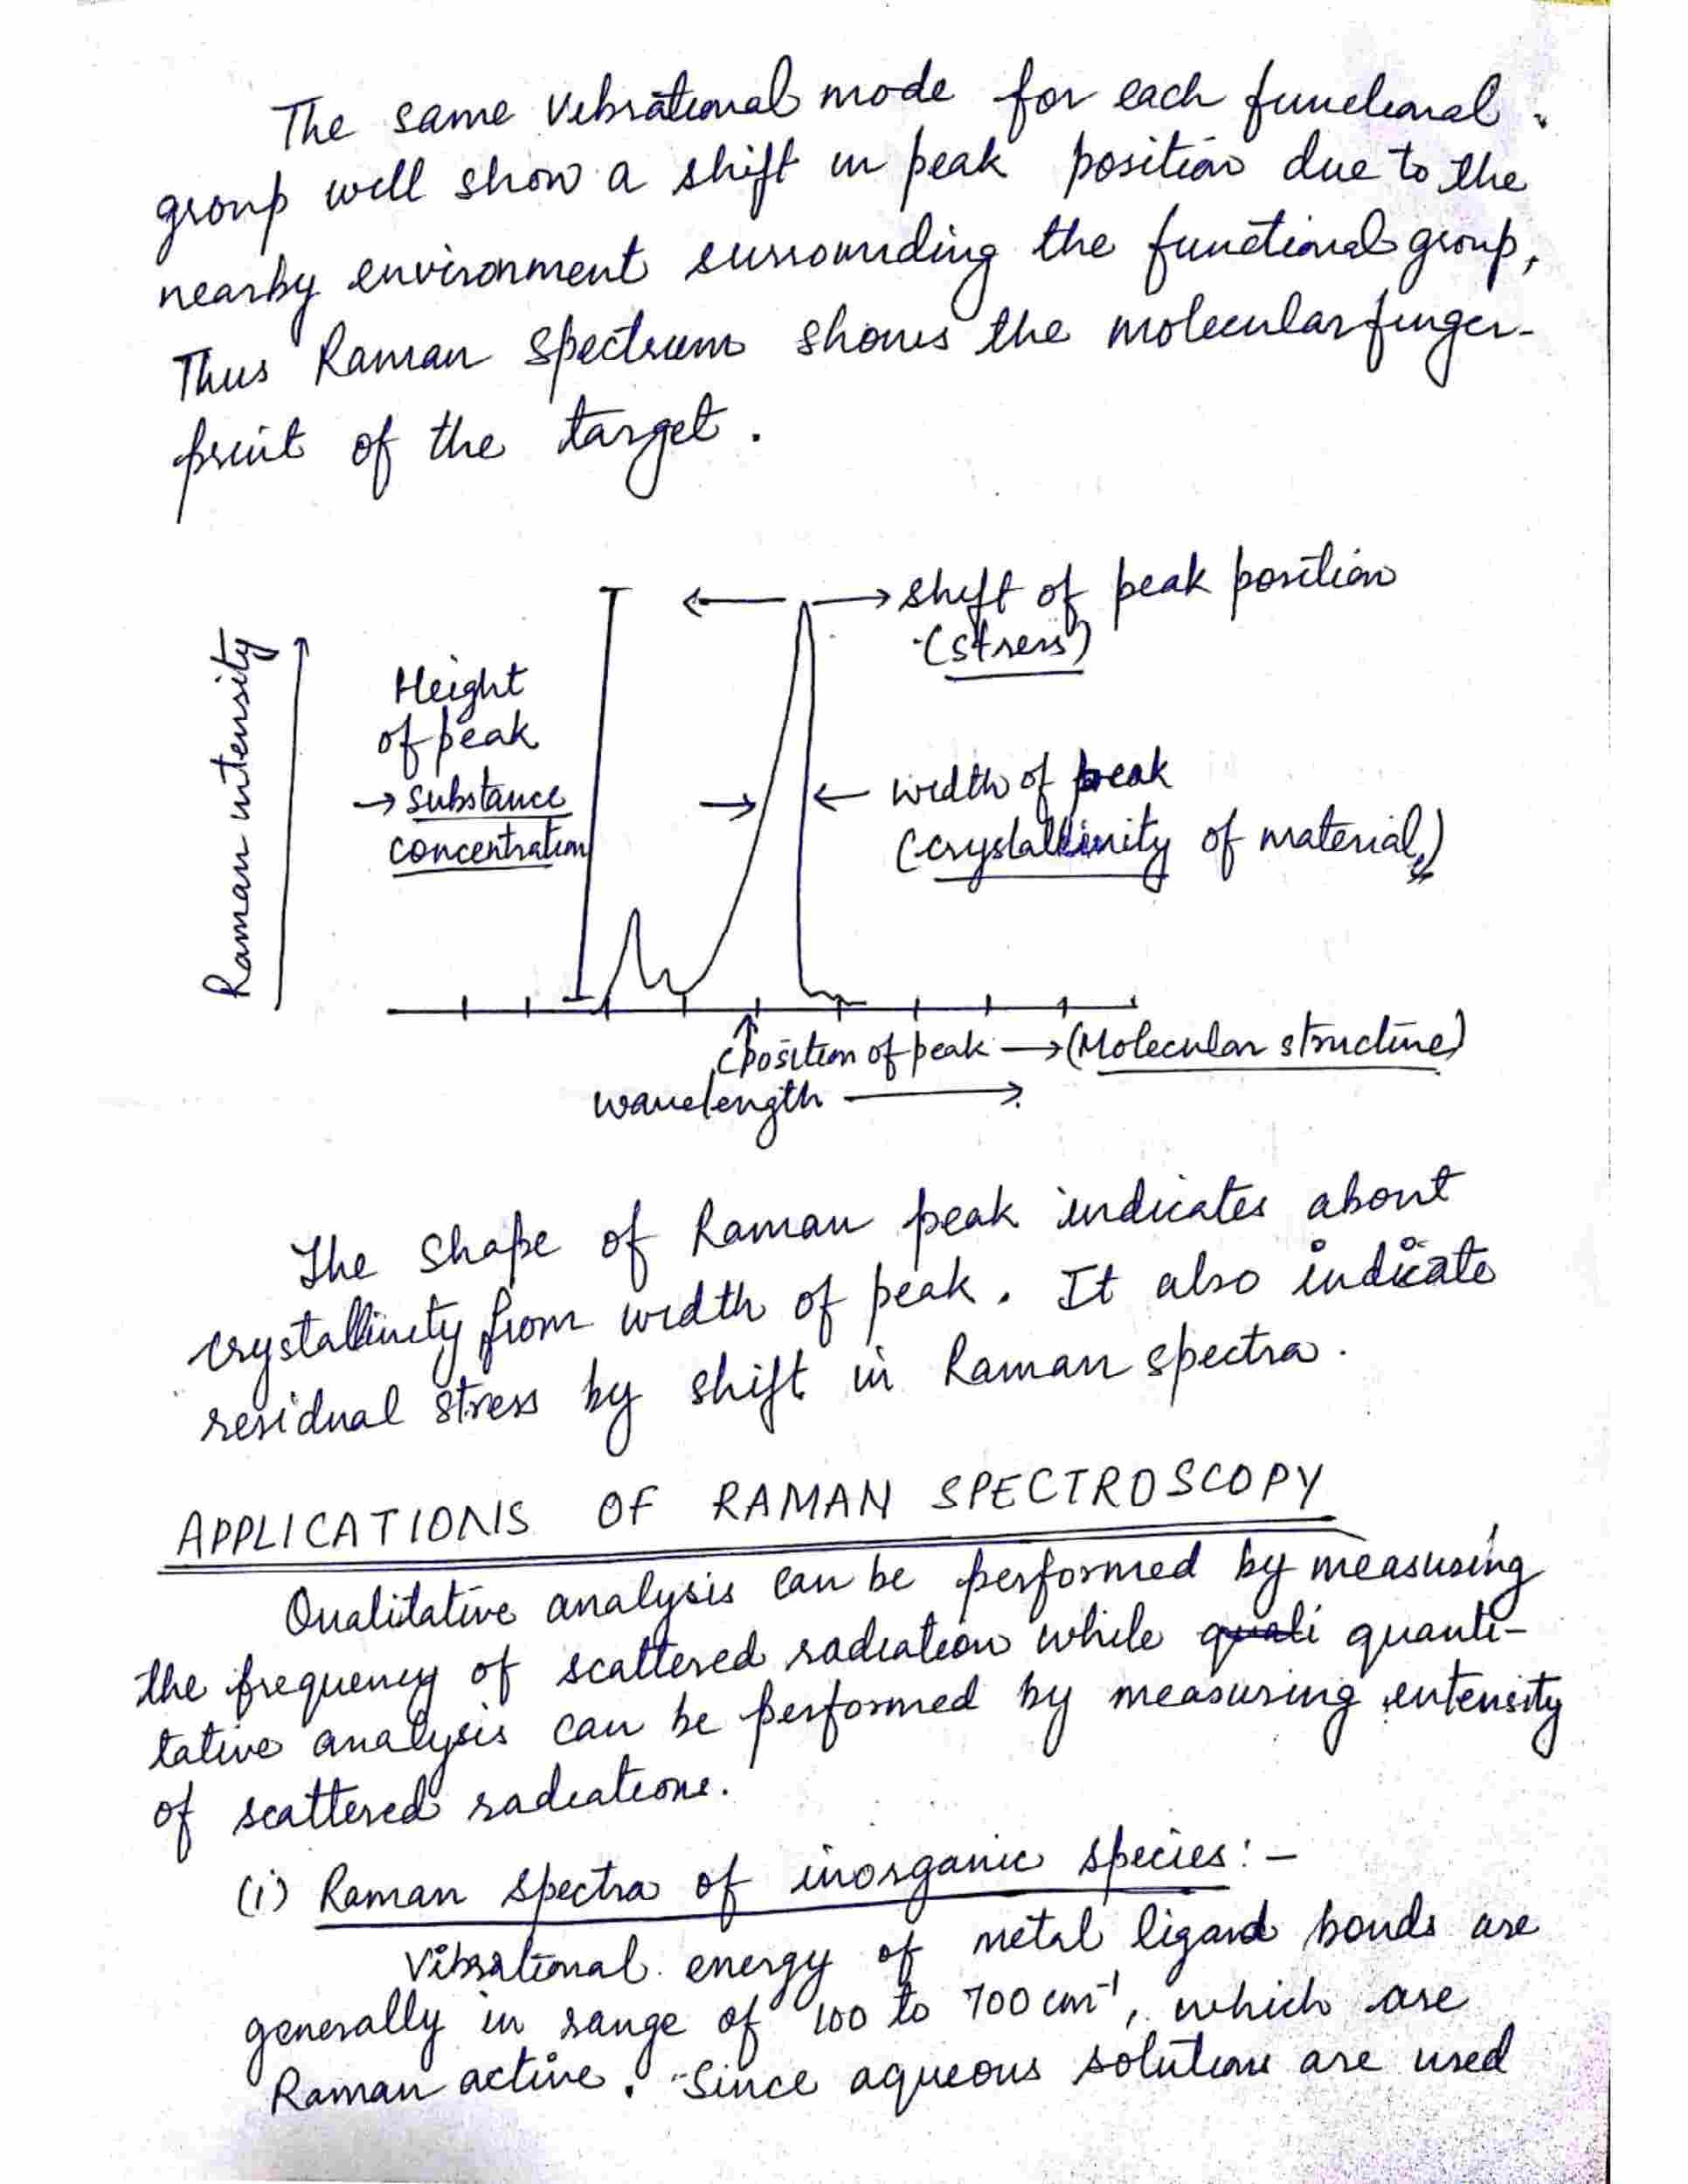 The same vibrational mode for each functional
group will show a shift in peak position due to the
nearby environment surrounding the functional group,
Thus Raman spectrum shows the molecular finger-
print of the target.
shift of peak position
(stress)
Raman intensity
Height
of peak
→ substance
concentration
width of peak
(crystallinity of material)
(Position of peak → (Molecular structure)
wavelength →
The shape of Raman peak indicates about
crystallinity from width of peak. It also indicate
residual stress by shift in Raman spectra.
APPLICATIONS OF RAMAN SPECTROSCOPY
Qualitative analysis can be performed by measuring
the frequency of scattered radiation while quali quanti-
tative analysis can be performed by measuring intensity
of scattered radiations.
(i) Raman spectra of inorganic species:-
Vibrational energy of metal ligand bonds are
generally in range of 100 to 700 cm⁻¹, which are
Raman active. Since aqueous solutions are used